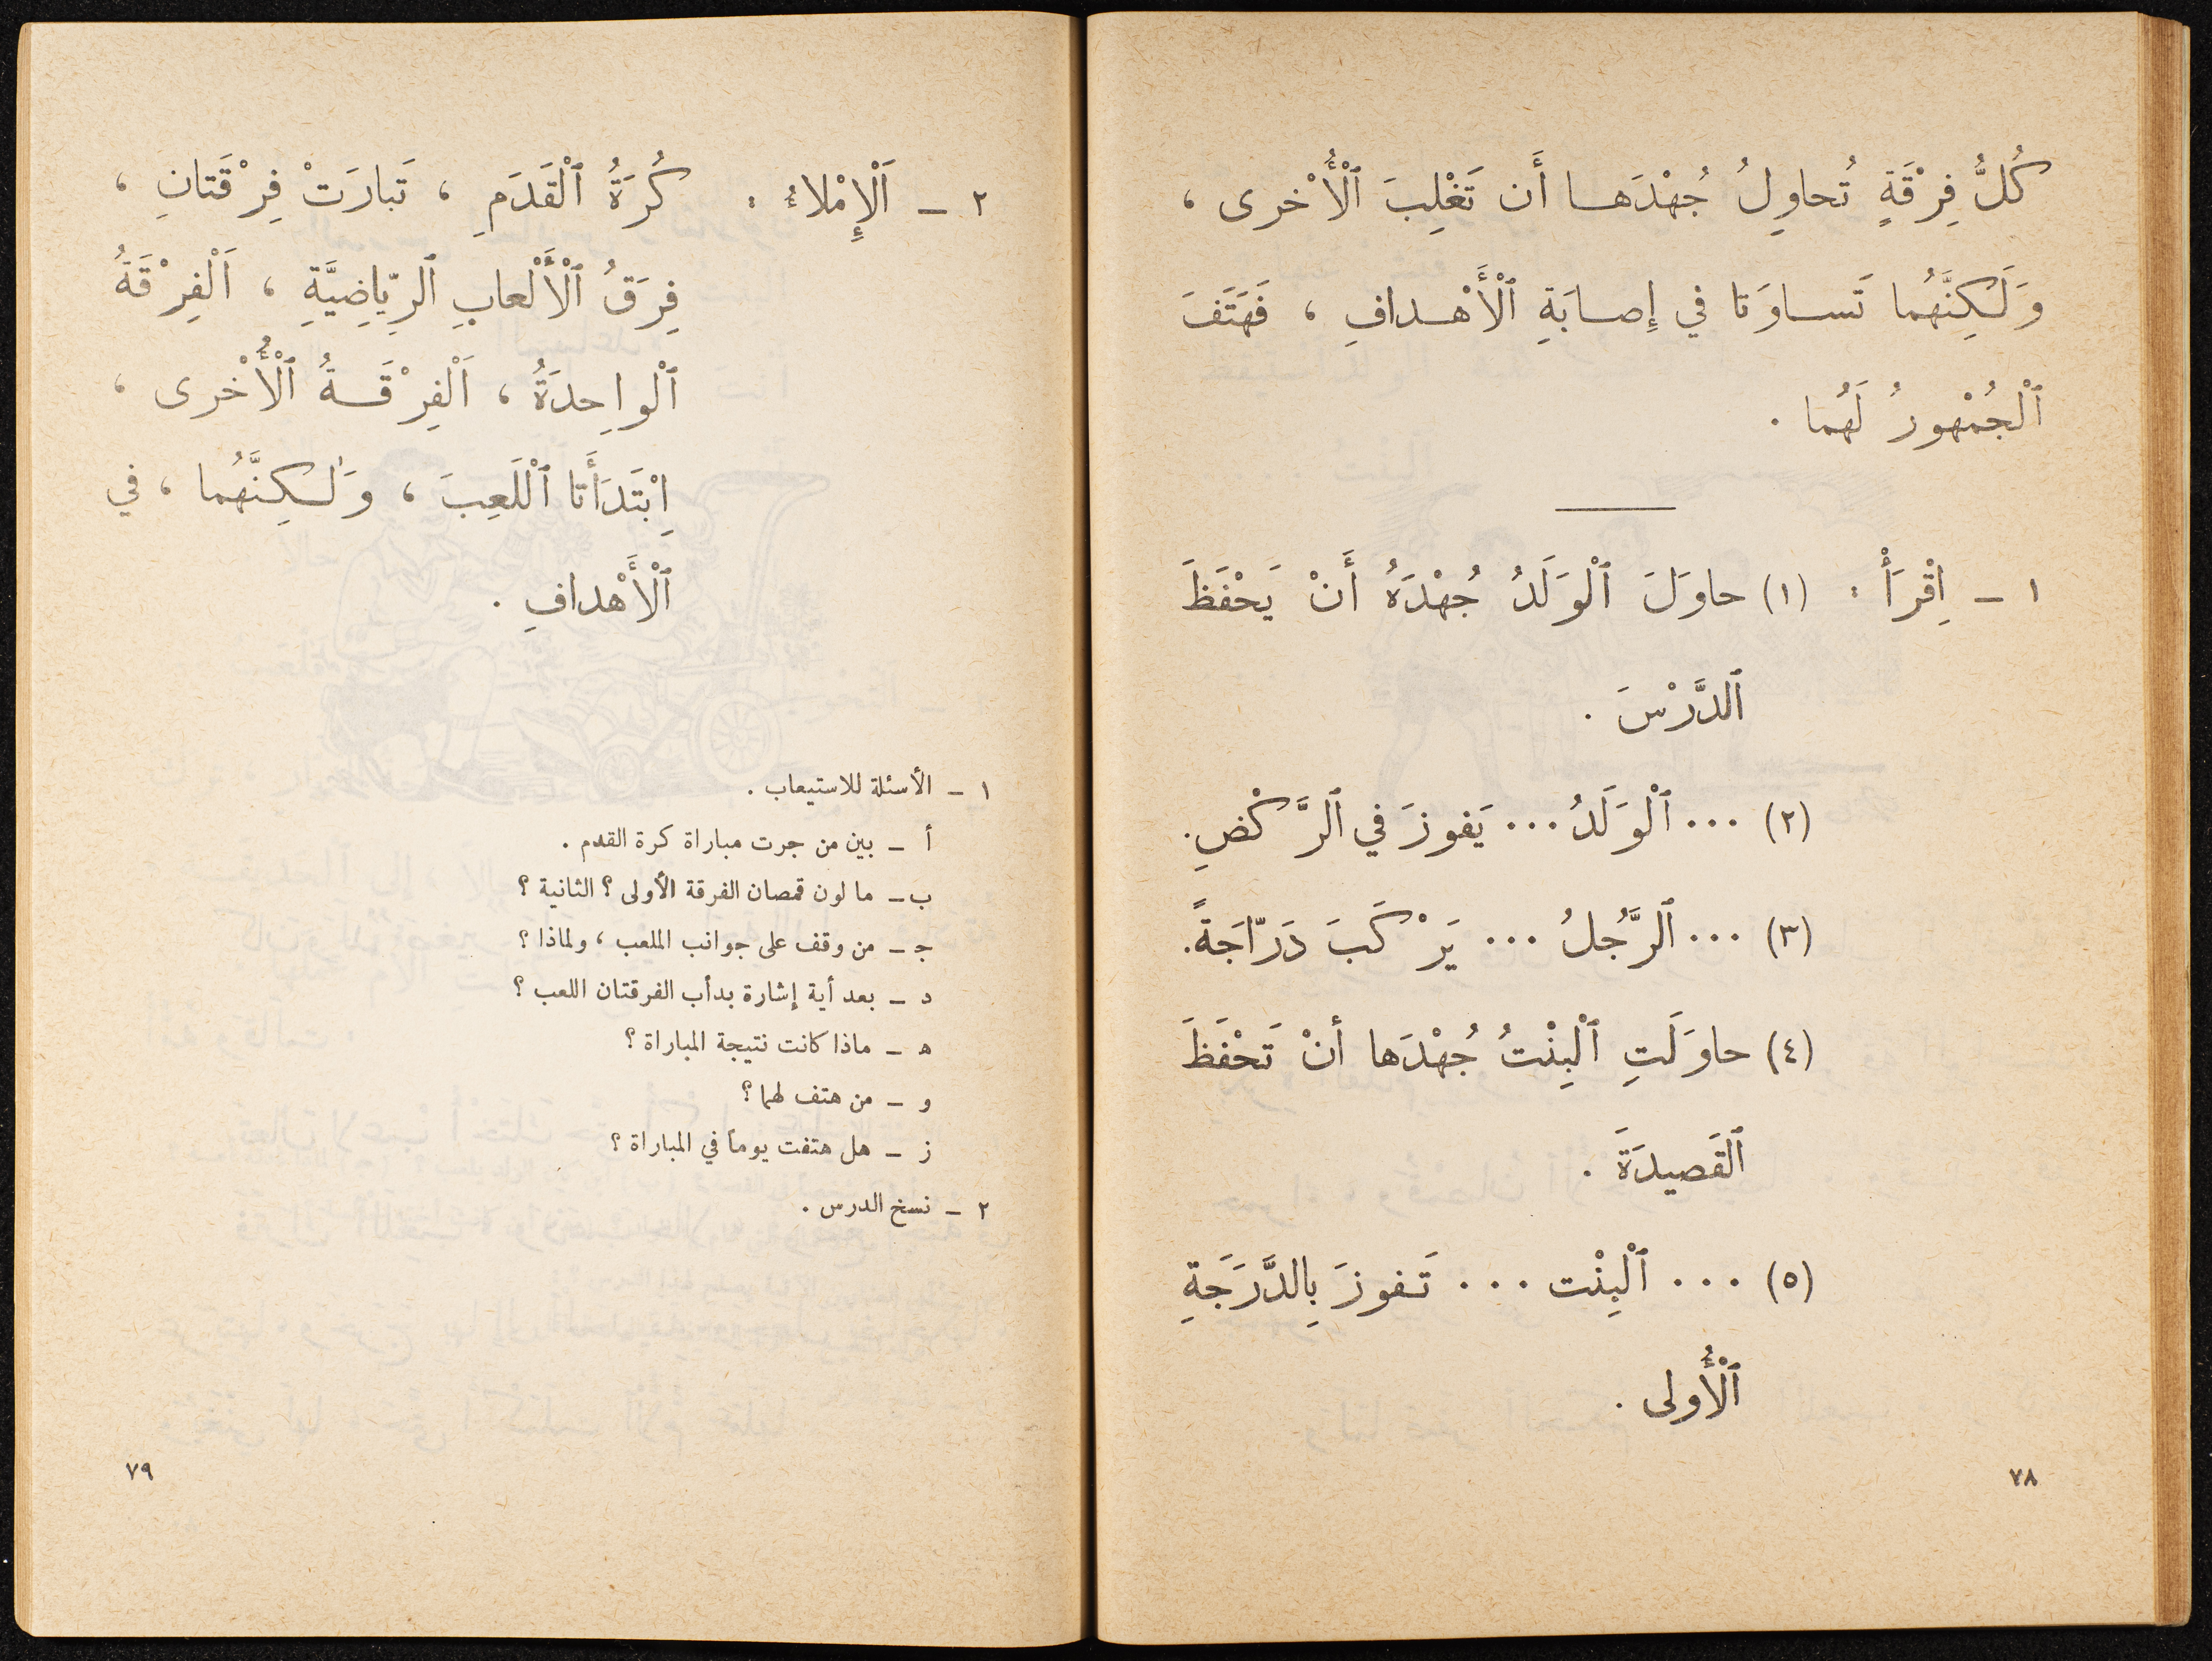 كُلُّ فِرْقَةٍ تُحاوِلُ جُهْدَهـا أَن تَغْلِبَ ٱلْأُخْرى ،
وَلَـكِنَّهُما تَسـاوَتا في إِصـابَةِ ٱلْأَهْـدافِ ، فَهَتَفَ
ٱلْجُمْهورُ لَهُما .
١ ـ اِقْرَأْ : (١) حاوَلَ ٱلْوَلَدُ جُهْدَهُ أَنْ يَحْفَظَ
ٱلدَّرْسَ .
(٢) ... ٱلْوَلَدُ ... يَفوزَ في ٱلرَّكْضِ.
(٣) ... ٱلرَّجُلُ ... يَرْكَبَ دَرّاجَةً.
(٤) حاوَلَتِ ٱلْبِنْتُ جُهْدَها أنْ تَحْفَظَ
ٱلْقَصيدَةَ .
(٥) ... ٱلْبِنْت ... تَـفوزَ بِالدَّرَجَةِ
ٱلْأُولى .
٧٨
٢ ـ اَلْإِمْلاءُ : كُرَةُ ٱلْقَدَمِ ، تَبارَتْ فِرْقَتانِ ،
فِرَقُ ٱلْأَلْعابِ ٱلرِّياضِيَّةِ ، اَلْفِرْقَةُ
ٱلْواحِدَةُ ، اَلْفِرْقَـةُ ٱلْأُخْرى ،
اِبْتَدَأَتا ٱللَّعِبَ ، وَلٰـكِنَّهُما ، في
ٱلْأَهْدافِ .
١ ـ الأسئلة للاستيعاب .
أ ـ بين من جرت مباراة كرة القدم .
ب ـ ما لون قمصان الفرقة الأولى ؟ الثانية ؟
جـ ـ من وقف على جوانب الملعب ، ولماذا ؟
د ـ بعد أية إشارة بدأب الفرقتان اللعب ؟
هـ ـ ماذا كانت نتيجة المباراة ؟
و ـ من هتف لهما ؟
ز ـ هل هتفت يوماً في المباراة ؟
٢ ـ نسخ الدرس .
٧٩